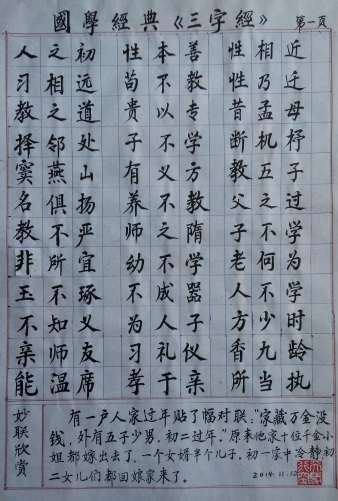 國學經典《三字經》 第一页
人之初 性本善 性相近
习相远 苟不教 性乃迁
教之道 贵以专 昔孟母
择邻处 子不学 断机杼
窦燕山 有义方 教五子
名俱扬 养不教 父之过
教不严 师之隋 子不学
非所宜 幼不学 老何为
玉不琢 不成器 人不学
不知义 为人子 方少时
亲师友 习礼仪 香九龄
能温席 孝于亲 所当执
妙联欣赏
有一户人家过年贴了幅对联:"家藏万金没
钱,外有五子少男,初二过年。"原来他家十位千金小
姐都嫁出去了,一个女婿半个儿子。初一家中冷静初
二女儿们都回嫁家来了。 2014.11.12